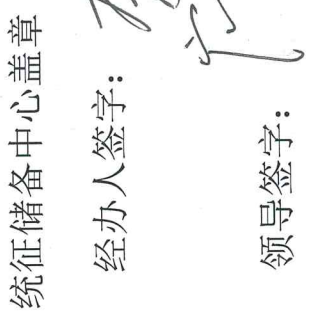 统征储备中心盖章
经办人签字：
领导签字：